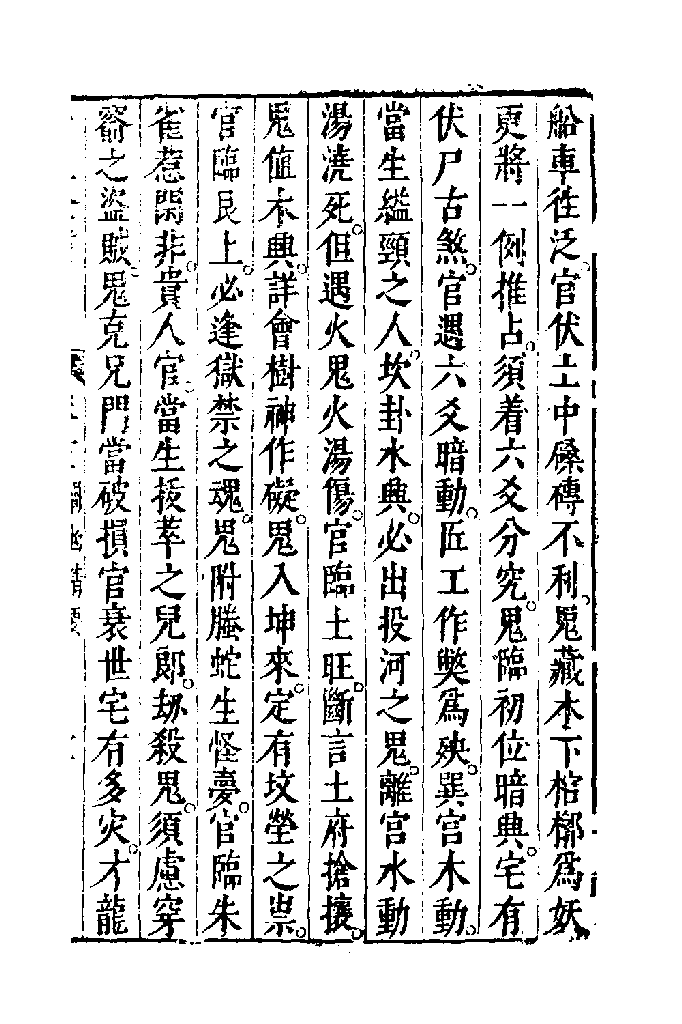 船車徃泛官伏土中磉磚不利鬼藏木下棺槨爲妖
更將一例推占須着六爻分究鬼臨初位暗典宅有
伏尸古煞官遇六爻暗動匠工作獘爲殃巽宫木動
當生縊頸之人坎卦水興必出投河之鬼離宫水動
湯澆死但遇火鬼火湯傷官臨土旺斷言土府搶攘
鬼值木興詳會樹神作礙鬼入坤來定有坟塋之祟
官臨艮上必逢獄禁之魂鬼附螣蛇生怪夢官臨朱
雀惹閑非貴人官當生拔萃之兒郎劫殺鬼須慮穿
窬之盜賊鬼克兄門當破損官衰世宅有多灾才龍